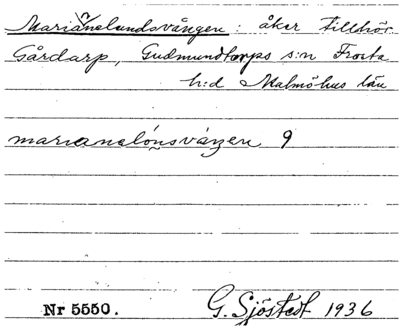 Marianelundsvången: åker tillhör
Gårdarp, Gudmundtorps s:n Frosta
h:d Malmöhus län
marianelónsváŋen 9
Nr 5550. G. Sjöstedt 1936